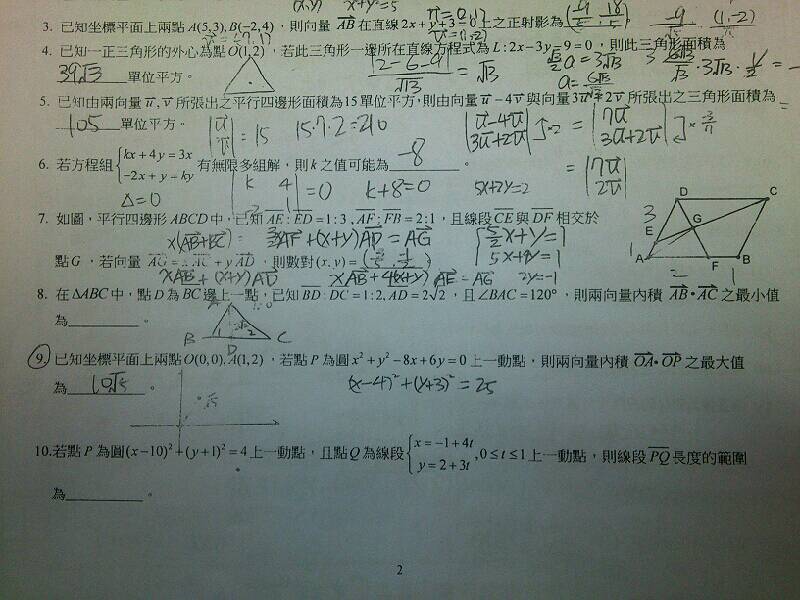 (x,y) x+y=5
3. 已知坐標平面上兩點 A(5,3), B(−2,4),則向量 AB 在直線 2x+y+3=0 上之正射影為
4. 已知一正三角形的外心為點 O(1,2),若此三角形一邊所在直線方程式為 L:2x−3y−9=0,則此三角形面積為
39√3 單位平方。 |2−6−9| / √13 = √13 a=3√13
5. 已知由兩向量 u,v 所張出之平行四邊形面積為15單位平方,則由向量 u−4v 與向量 3u+2v 所張出之三角形面積為
105 單位平方。 =15 15·7·2=210
6. 若方程組 { kx+4y=3x −2x+y=ky 有無限多組解,則 k 之值可能為 −8 。
Δ=0 | k 4 =0 k+8=0 5x+2y=2
7. 如圖,平行四邊形 ABCD 中,已知 AE:ED=1:3, AF:FB=2:1,且線段 CE 與 DF 相交於
點 G,若向量 AG = x AB + y AD,則數對 (x,y)=
D C G E A F B 3 1 2 1
8. 在 ΔABC 中,點 D 為 BC 邊上一點,已知 BD:DC=1:2, AD=2√2,且∠BAC=120°,則兩向量內積 AB•AC 之最小值
為 。
A B D C
9. 已知坐標平面上兩點 O(0,0), A(1,2),若點 P 為圓 x²+y²−8x+6y=0 上一動點,則兩向量內積 OA•OP 之最大值
為 10√5 。 (x−4)²+(y+3)²=25
√5
10.若點 P 為圓 (x−10)²+(y+1)²=4 上一動點,且點 Q 為線段 { x=−1+4t y=2+3t ,0≤t≤1 上一動點,則線段 PQ 長度的範圍
為 。
2